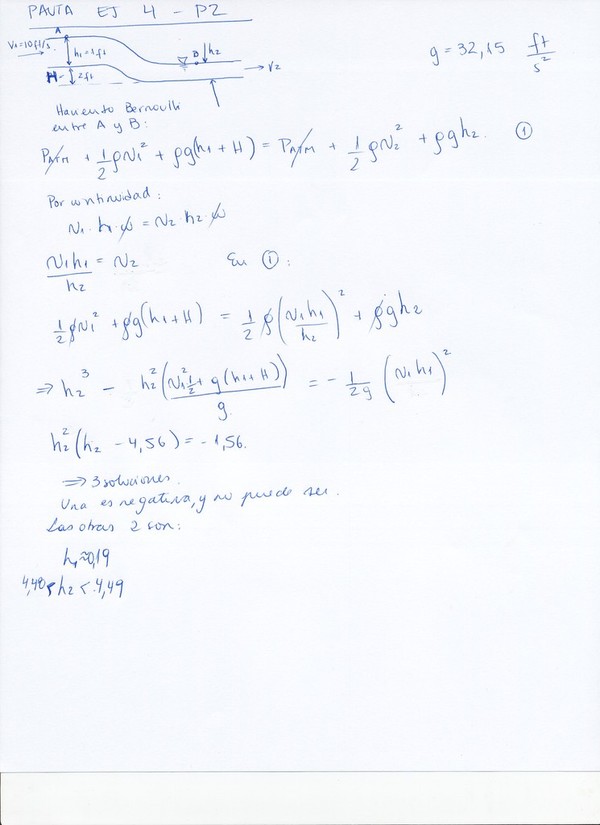 PAUTA EJ 4 - P2
A
V₁=10 ft/s
h₁=1ft
B
h₂
H
2ft
V₂
g = 32,15 ft/s²
Haciendo Bernoulli
entre A y B:
PATM + 1/2 ρv₁² + ρg(h₁ + H) = PATM + 1/2 ρv₂² + ρgh₂. ①
Por continuidad:
v₁ · h₁ · ω = v₂ · h₂ · ω
v₁h₁/h₂ = v₂ En ①:
1/2 ρv₁² + ρg(h₁ + H) = 1/2 ρ(v₁h₁/h₂)² + ρgh₂
⇒ h₂³ - h₂²(v₁² 1/2 + g(h₁+H))/g = - 1/2g (v₁h₁)²
h₂²(h₂ - 4,56) = -1,56.
⇒ 3 soluciones.
Una es negativa, y no puede ser.
Las otras 2 son:
≈0,19
4,48 < h₂ < 4,49